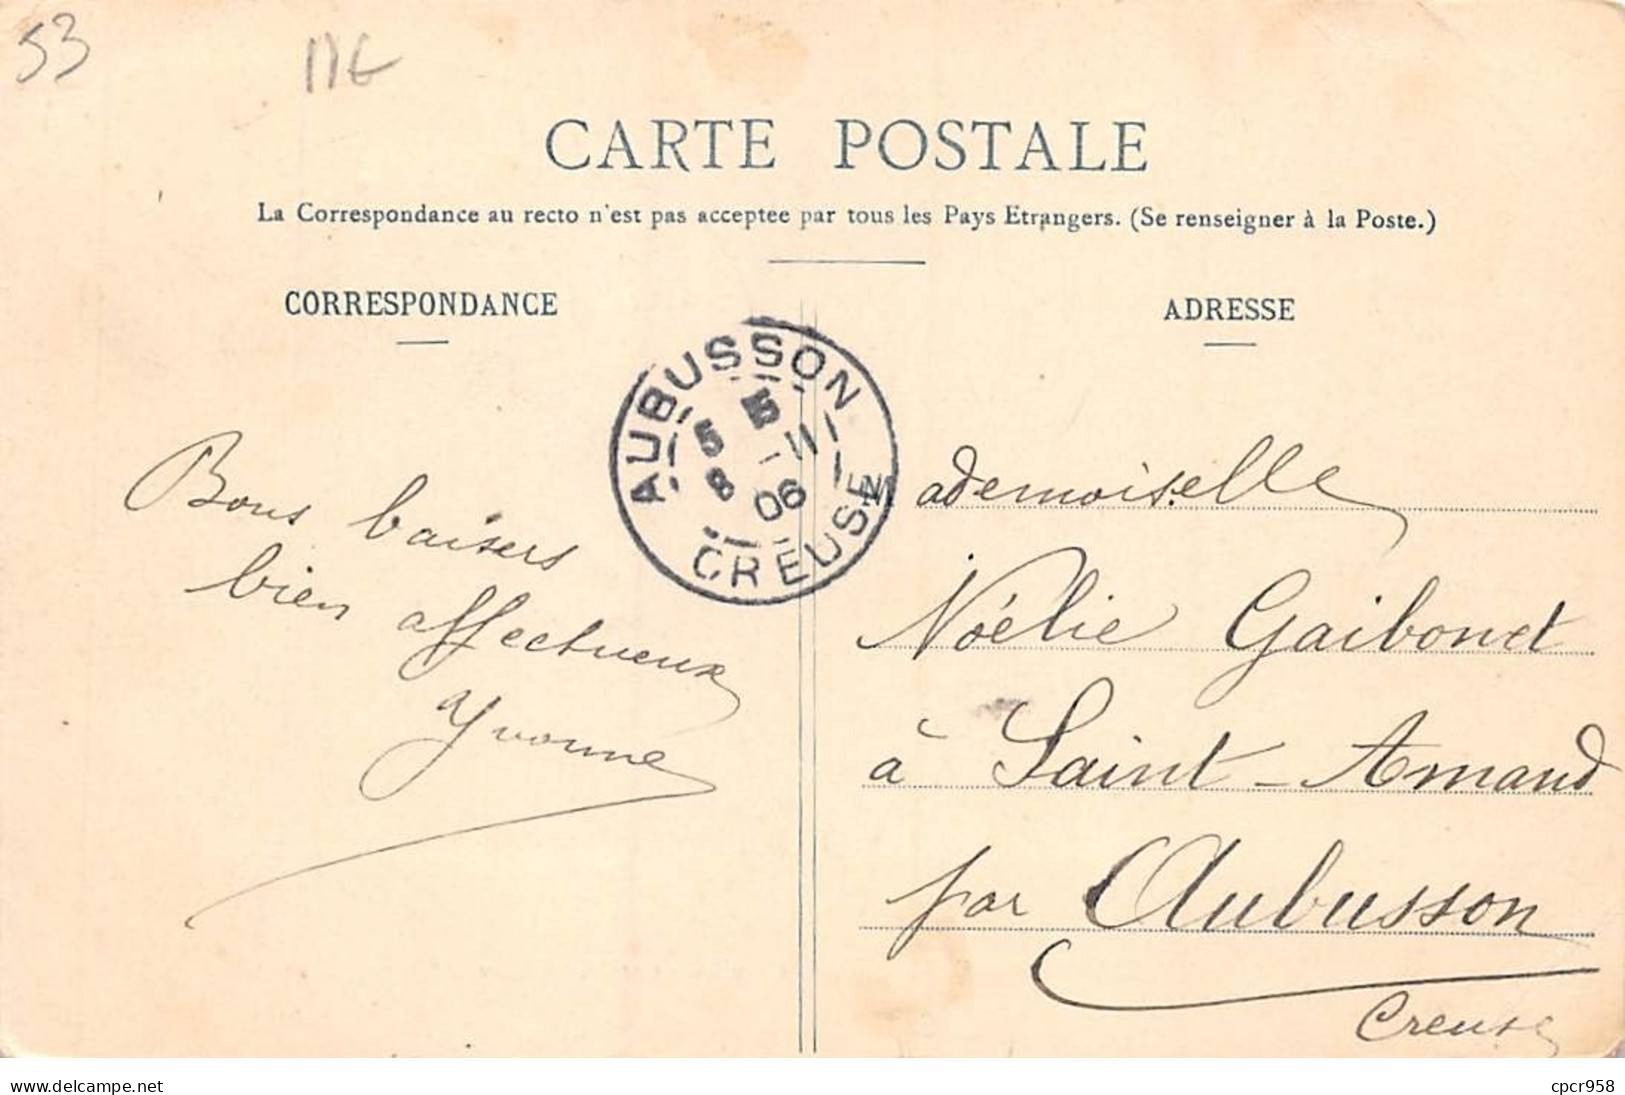 53
CARTE POSTALE
La Correspondance au recto n'est pas acceptee par tous les Pays Etrangers. (Se renseigner à la Poste.)
CORRESPONDANCE
ADRESSE
AUBUSSON
5 5
8 -11
06
CREUSE
Bons baisers
bien affectueux
Yvonne
Mademoiselle
Noélie Gaibonet
à Saint-Amand
par Aubusson
Creuse
www.delcampe.net
cpcr958